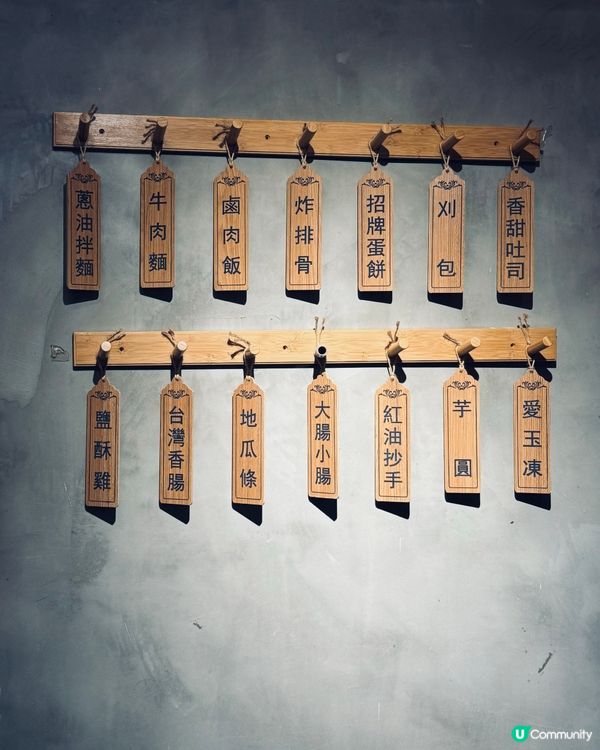 蔥油拌麵
牛肉麵
鹵肉飯
炸排骨
招牌蛋餅
刈包
香甜吐司
鹽酥雞
台灣香腸
地瓜條
大腸小腸
紅油抄手
芋圓
愛玉凍
U Community